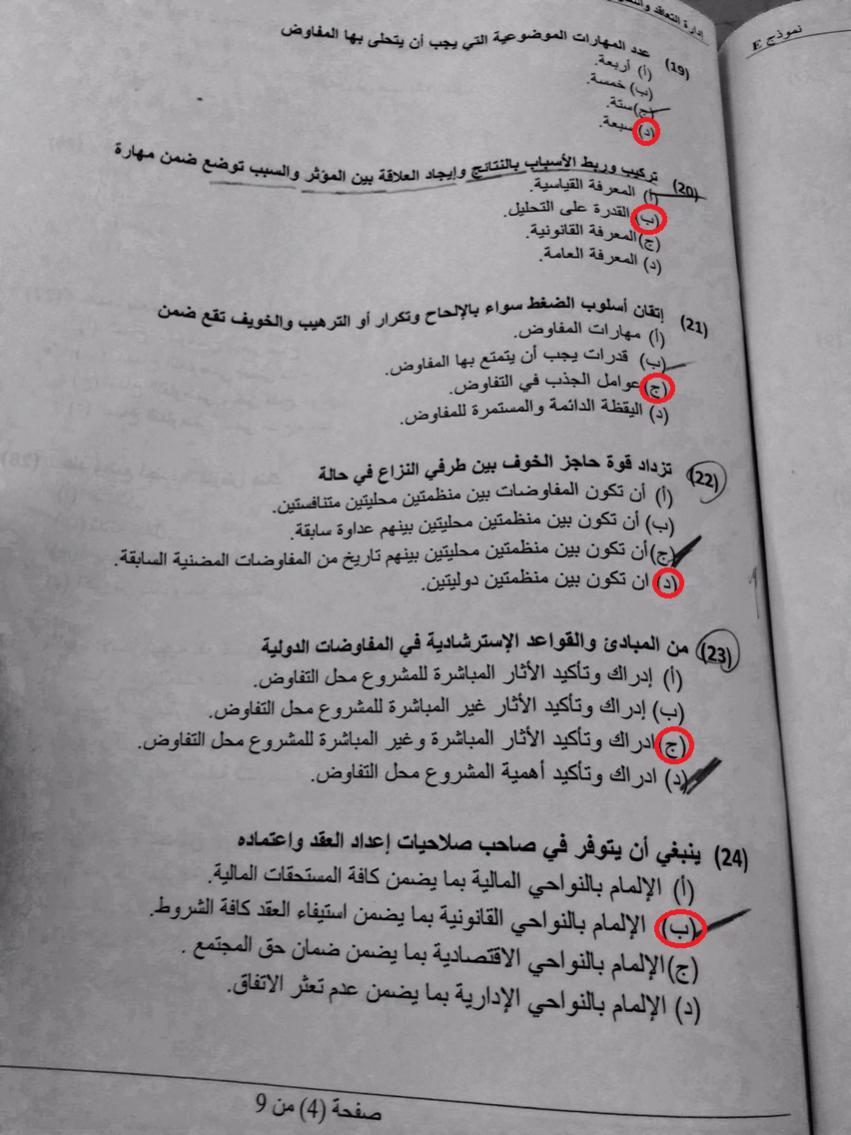 نموذج E
إدارة التعاقد
(19) عدد المهارات الموضوعية التي يجب أن يتحلى بها المفاوض
(أ) أربعة.
(ب) خمسة.
(ج) ستة.
(د) سبعة.
(20) تركيب وربط الأسباب بالنتائج وإيجاد العلاقة بين المؤثر والسبب توضع ضمن مهارة
(أ) المعرفة القياسية.
(ب) القدرة على التحليل.
(ج) المعرفة القانونية.
(د) المعرفة العامة.
(21) إتقان أسلوب الضغط سواء بالإلحاح وتكرار أو الترهيب والخويف تقع ضمن
(أ) مهارات المفاوض.
(ب) قدرات يجب أن يتمتع بها المفاوض.
(ج) عوامل الجذب في التفاوض.
(د) اليقظة الدائمة والمستمرة للمفاوض.
(22) تزداد قوة حاجز الخوف بين طرفي النزاع في حالة
(أ) أن تكون المفاوضات بين منظمتين محليتين متنافستين.
(ب) أن تكون بين منظمتين محليتين بينهم عداوة سابقة.
(ج) أن تكون بين منظمتين محليتين بينهم تاريخ من المفاوضات المضنية السابقة.
(د) ان تكون بين منظمتين دوليتين.
(23) من المبادئ والقواعد الإسترشادية في المفاوضات الدولية
(أ) إدراك وتأكيد الأثار المباشرة للمشروع محل التفاوض.
(ب) إدراك وتأكيد الأثار غير المباشرة للمشروع محل التفاوض.
(ج) ادراك وتأكيد الأثار المباشرة وغير المباشرة للمشروع محل التفاوض.
(د) ادراك وتأكيد أهمية المشروع محل التفاوض.
(24) ينبغي أن يتوفر في صاحب صلاحيات إعداد العقد واعتماده
(أ) الإلمام بالنواحي المالية بما يضمن كافة المستحقات المالية.
(ب) الإلمام بالنواحي القانونية بما يضمن استيفاء العقد كافة الشروط.
(ج) الإلمام بالنواحي الاقتصادية بما يضمن ضمان حق المجتمع .
(د) الإلمام بالنواحي الإدارية بما يضمن عدم تعثر الاتفاق.
صفحة (4) من 9